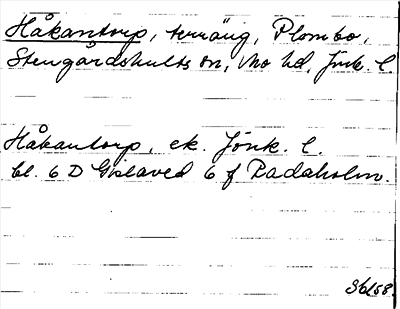 Håkantorp, terräng, Plombo,
Stengårdshults sn, Mo hd, Jönk. l.
Håkantorp, ek. Jönk. l.
bl. 6 D Gislaved 6 f Radaholm.
36/58